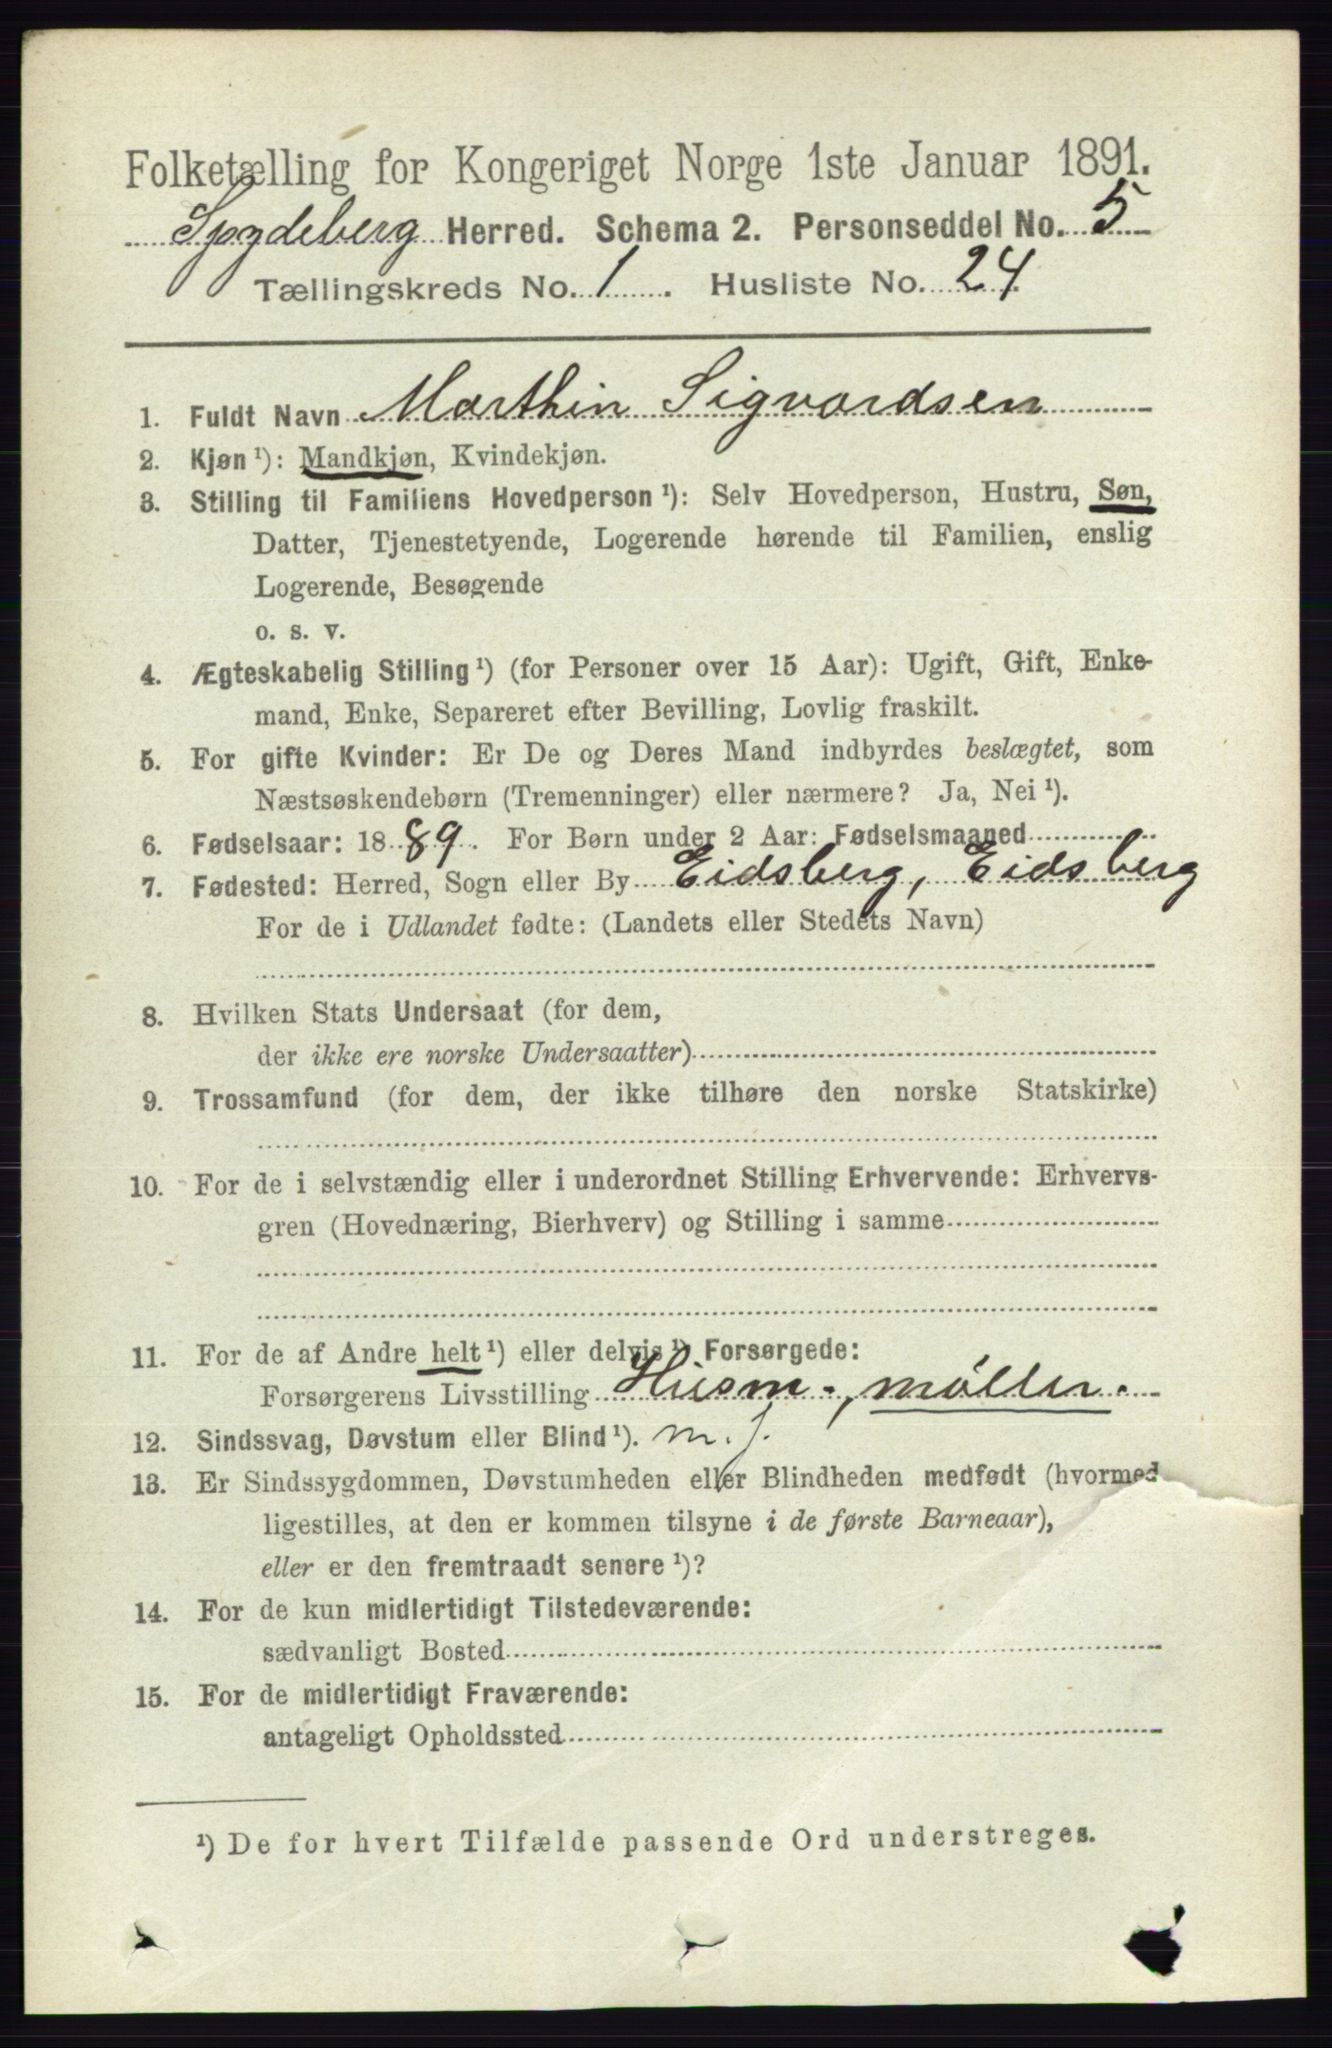 Folketælling for Kongeriget Norge 1ste Januar 1891.
Spydeberg Herred. Schema 2. Personseddel No. 5
Tællingskreds No. 1. Husliste No. 24.
1. Fuldt Navn Marthin Sigvardsen
2. Kjøn ¹): Mandkjøn, Kvindekjøn.
3. Stilling til Familiens Hovedperson ¹): Selv Hovedperson, Hustru, Søn,
Datter, Tjenestetyende, Logerende hørende til Familien, enslig
Logerende, Besøgende
o. s. v.
4. Ægteskabelig Stilling ¹) (for Personer over 15 Aar): Ugift, Gift, Enke-
mand, Enke, Separeret efter Bevilling, Lovlig fraskilt.
5. For gifte Kvinder: Er De og Deres Mand indbyrdes beslægtet, som
Næstsøskendebørn (Tremenninger) eller nærmere? Ja, Nei ¹).
6. Fødselsaar: 1889. For Børn under 2 Aar: Fødselsmaaned
7. Fødested: Herred, Sogn eller By Eidsberg, Eidsberg
For de i Udlandet fødte: (Landets eller Stedets Navn)
8. Hvilken Stats Undersaat (for dem,
der ikke ere norske Undersaatter)
9. Trossamfund (for dem, der ikke tilhøre den norske Statskirke)
10. For de i selvstændig eller i underordnet Stilling Erhvervende: Erhvervs-
gren (Hovednæring, Bierhverv) og Stilling i samme
11. For de af Andre helt ¹) eller delvis ¹) Forsørgede:
Forsørgerens Livsstilling Husm., møller.
12. Sindssvag, Døvstum eller Blind ¹). m. j.
13. Er Sindssygdommen, Døvstumheden eller Blindheden medfødt (hvormed
ligestilles, at den er kommen tilsyne i de første Barneaar),
eller er den fremtraadt senere ¹)?
14. For de kun midlertidigt Tilstedeværende:
sædvanligt Bosted
15. For de midlertidigt Fraværende:
antageligt Opholdssted
¹) De for hvert Tilfælde passende Ord understreges.